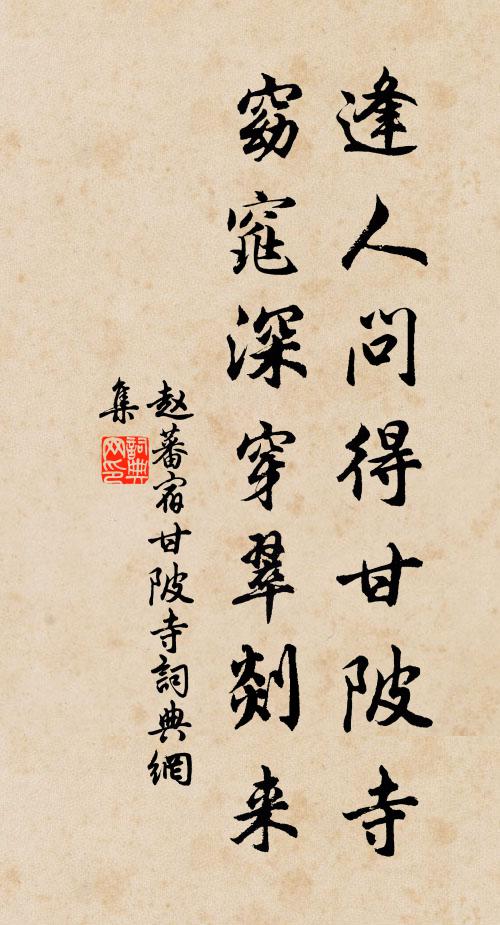 逢人问得甘陂寺
窈窕深穿翠剡来
赵蕃宿甘陂寺詞典網
集
詞典
网印